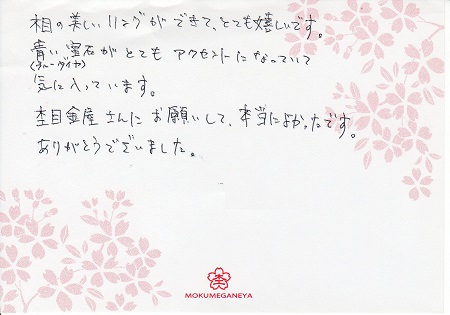 相の美しいリングができて、とても嬉しいです。
青い宝石がとてもアクセントになっていて
(ブルーダイヤ)
気に入っています。
杢目金屋さんにお願いして、本当によかったです。
ありがとうございました。
杢
MOKUMEGANEYA